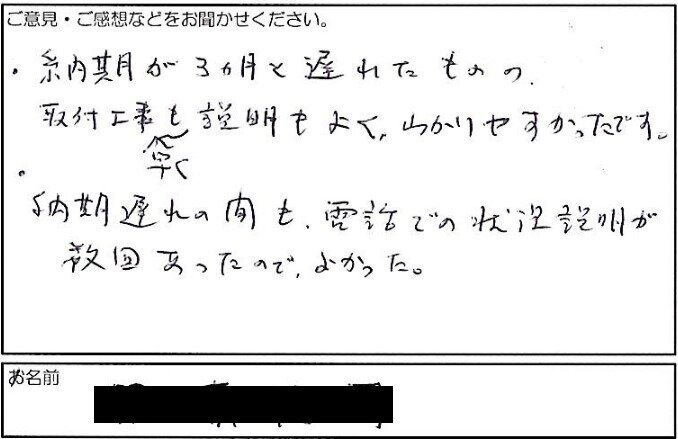 ご意見・ご感想などをお聞かせください。
・納期が3ヵ月と遅れたものの、
取付工事も早く説明もよく、わかりやすかったです。
・
納期遅れの間も、電話での状況説明が
数回あったので、よかった。
お名前